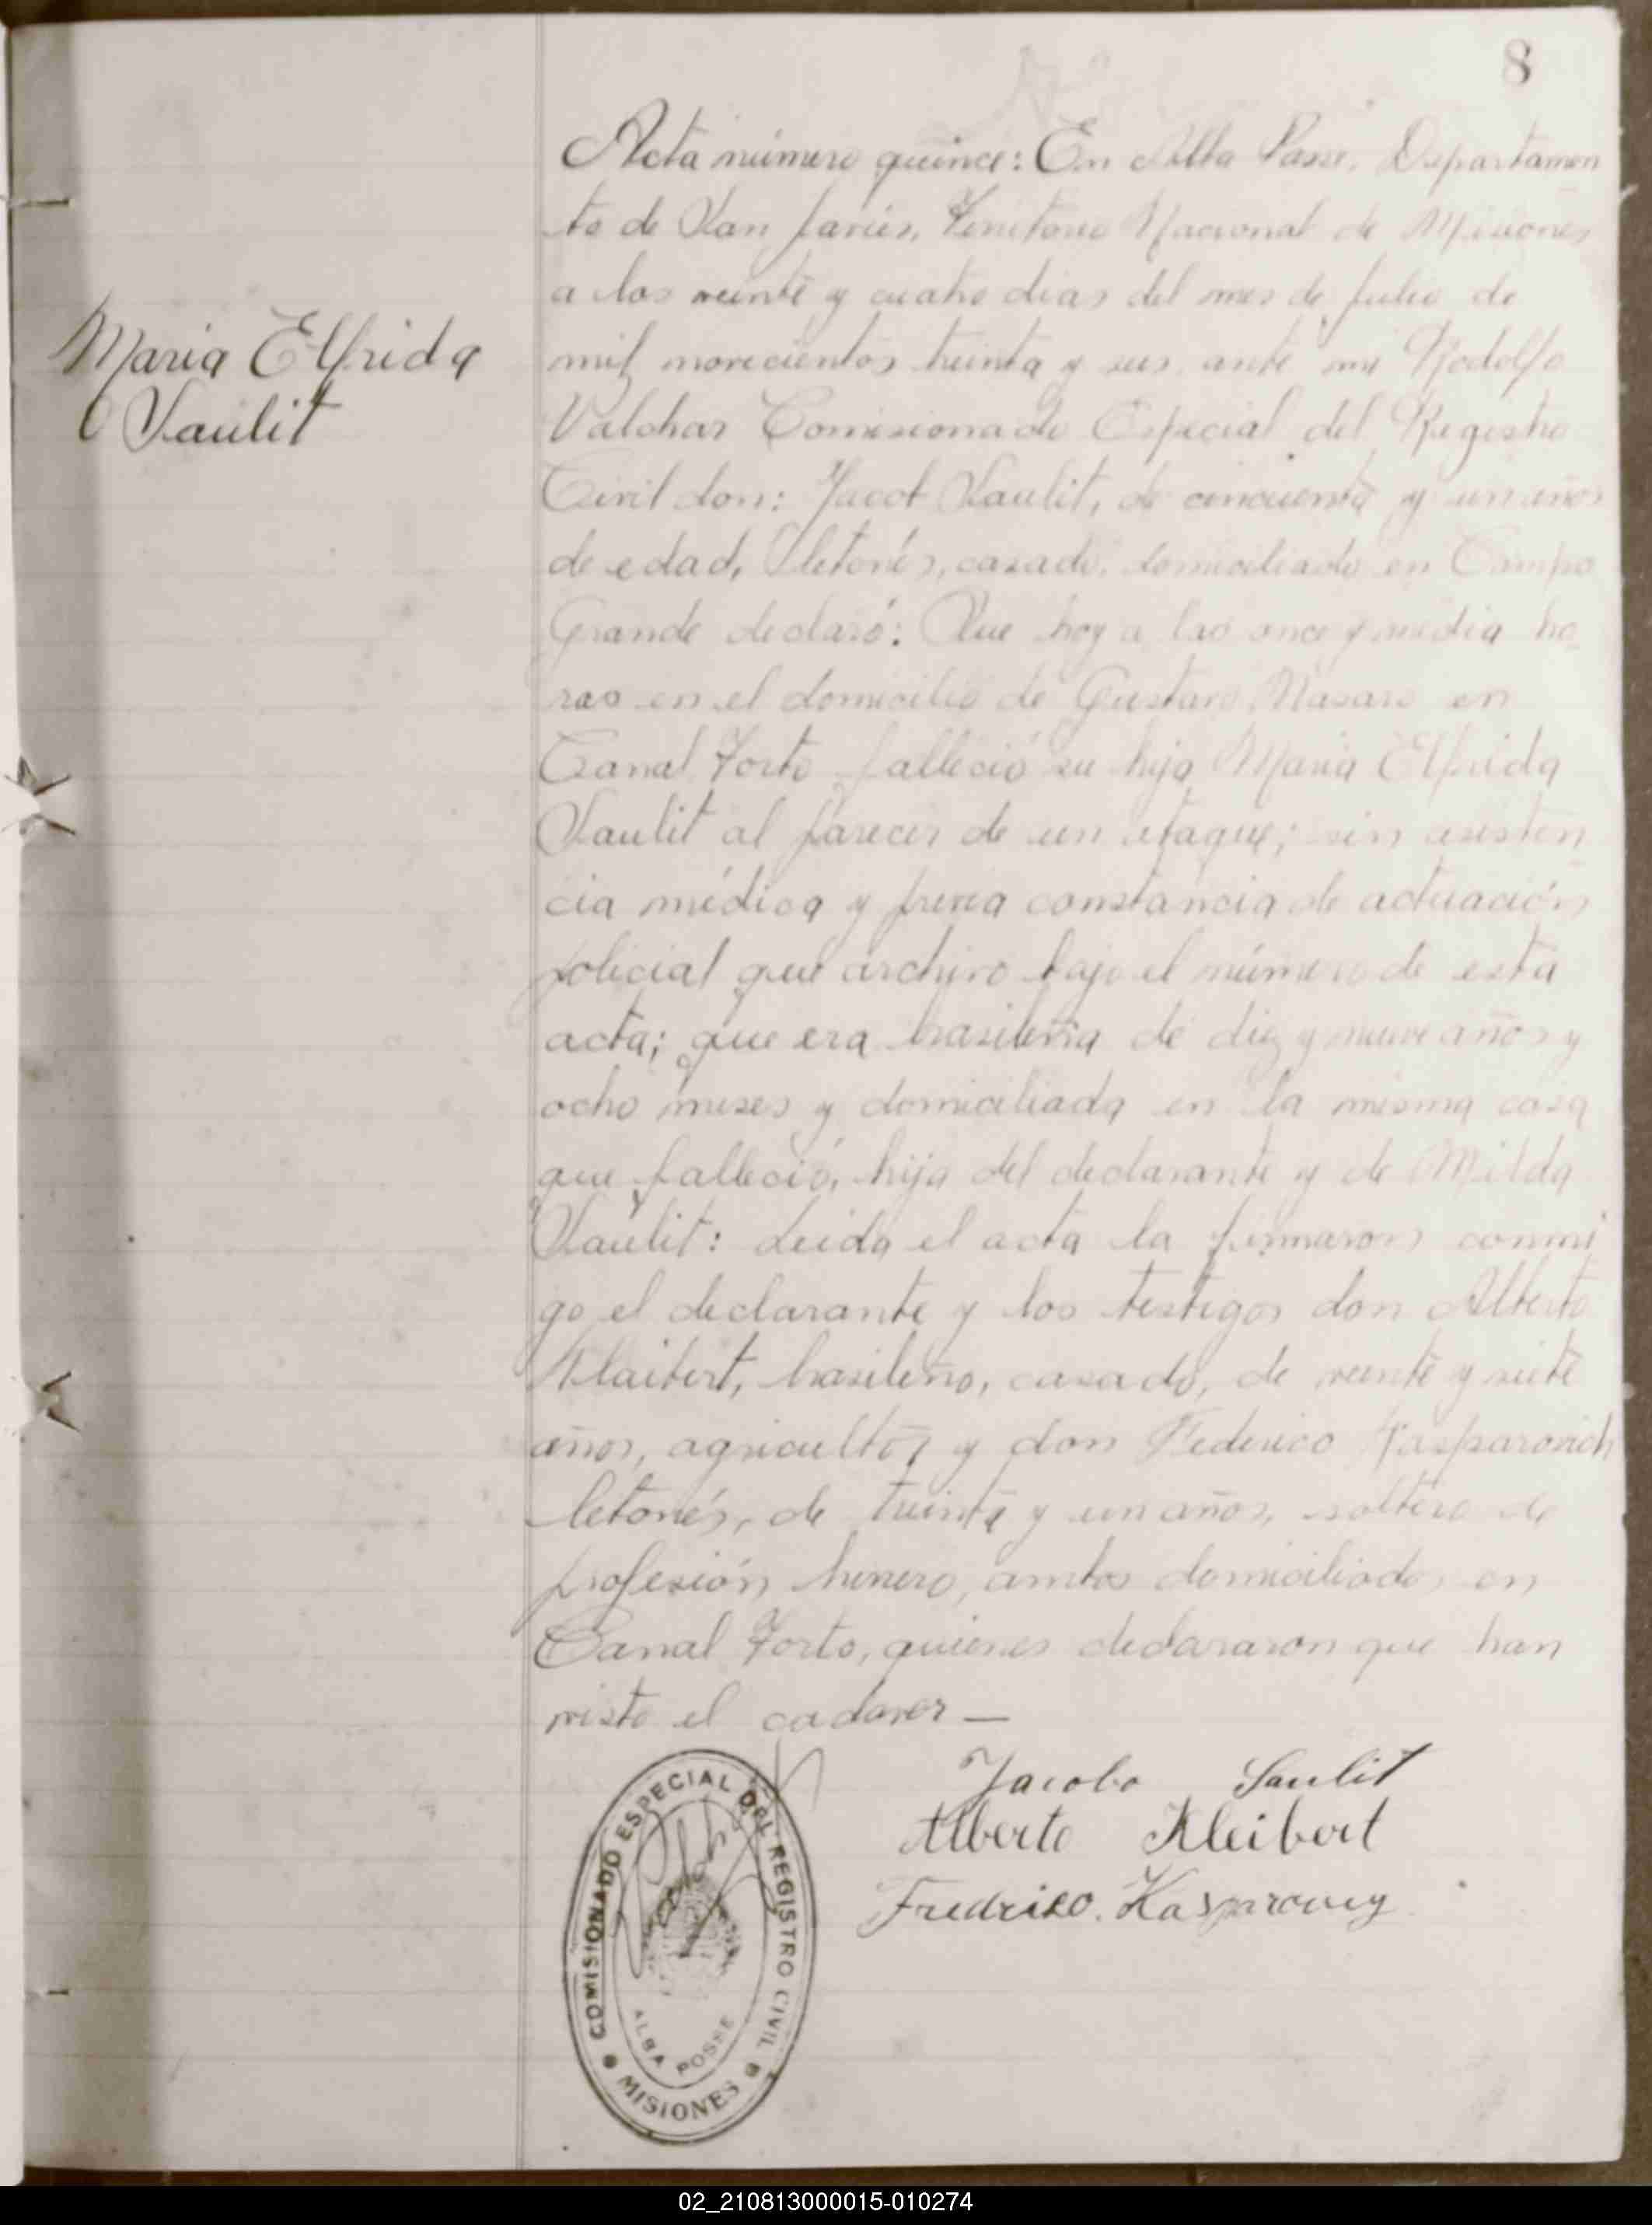 8
Maria Elfrida
Saulit
Acta número quince: En Alba Posse, Departamen
to de San Javier, Territorio Nacional de Misiones
a los veinte y cuatro dias del mes de Julio de
mil novecientos treinta y seis, ante mi Rodolfo
Valchar Comisionado Especial del Registro
Civil don: Jacob Saulit, de cincuenta y un años
de edad, letonés, casado, domiciliado en Campo
Grande declaró: Que hoy a las once y media ho
ras en el domicilio de Gustavo en
Canal Torto falleció su hija Maria Elfrida
Saulit al parecer de un ataque; sin asisten
cia médica y previa constancia de actuación
policial que archivo bajo el número de esta
acta; que era brasileña de diez y nueve años y
ocho meses y domiciliada en la misma casa
que falleció, hija del declarante y de Milda
Saulit: Leida el acta la firmaron conmi
go el declarante y los testigos don Alberto
Klaibert, brasileño, casado, de veinte y siete
años, agricultor y don Federico Kasparovich
letonés, de treinta y un años, soltero de
profesión herrero, ambos domiciliados en
Canal Torto, quienes declararon que han
visto el cadaver —
Jacobo Saulit
Alberto Kleibert
Fredriko. Kasparovig
COMISIONADO ESPECIAL DEL REGISTRO CIVIL
ALBA POSSE
MISIONES
02_210813000015-010274